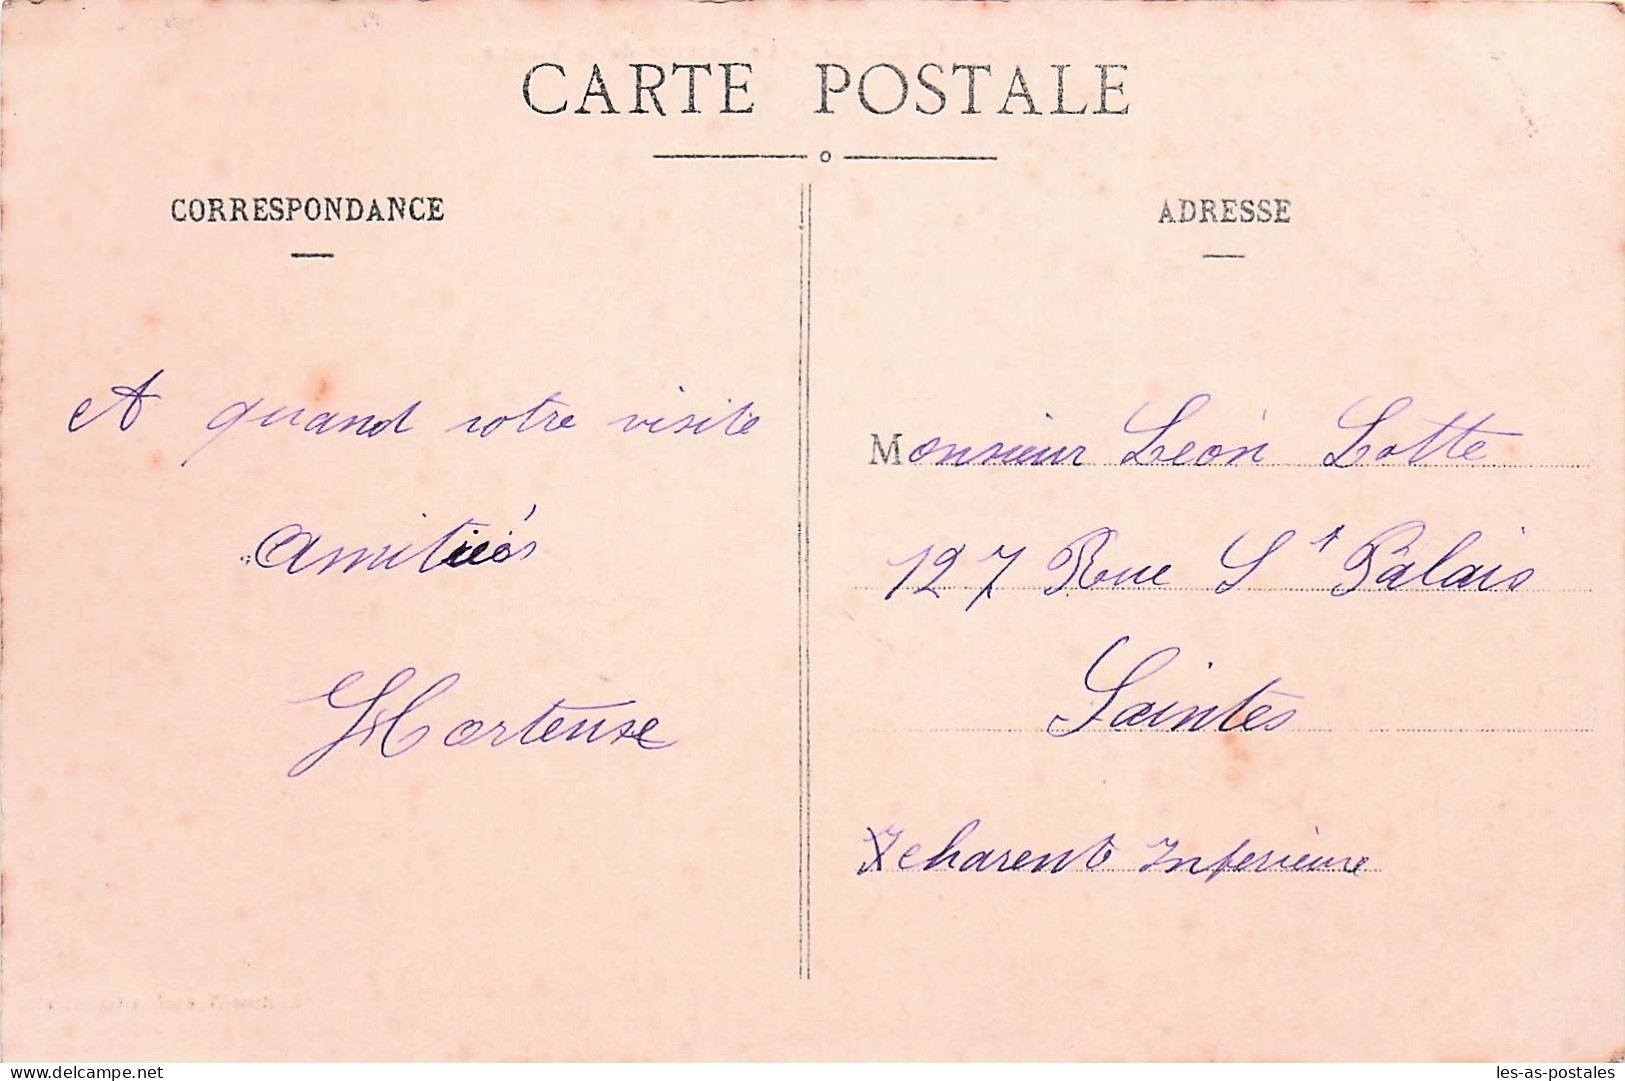 CARTE POSTALE
CORRESPONDANCE
A quand votre visite
Amitiés
Hortense
ADRESSE
Monsieur Léon Lotte
127 Rue St Palais
Saintes
charente Inferieure
delcampe.net
les-as-postales